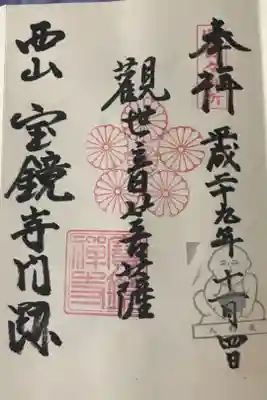 奉拝
平成二十九年十一月四日
觀世音菩薩
西山 宝鏡寺門跡